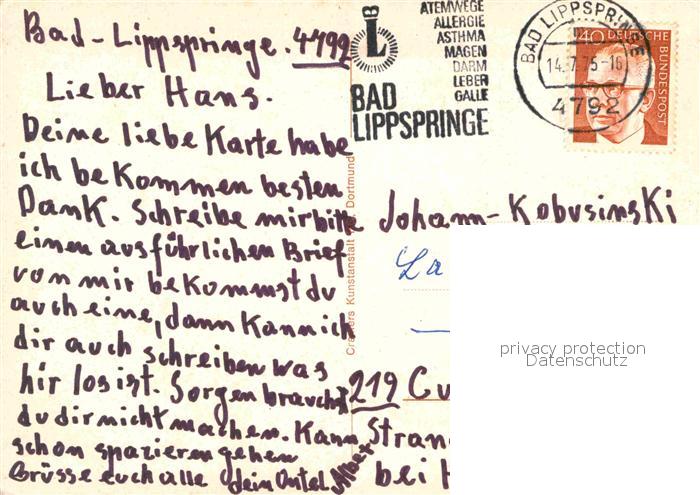 Bad-Lippspringe. 4792
Lieber Hans.
Deine liebe Karte habe
ich bekommen besten
Dank. Schreibe mir bitte
einen ausführlichen Brief
von mir bekommst du
auch eine, dann kann ich
dir auch schreiben was
hir los ist. Sorgen brauchst
du dir nicht machen. Kann
schon spazieren gehen
Grüsse euch alle dein Onkel
ATEMWEGE
ALLERGIE
ASTHMA
MAGEN
DARM
LEBER
GALLE
BAD
LIPPSPRINGE
BAD LIPPSPRINGE
14.7.75-16
4792
40 DEUTSCHE BUNDESPOST
Kunstanstalt Dortmund
Johann-Kobusinski
La
219 Cu
Stran
bei H
privacy protection
Datenschutz